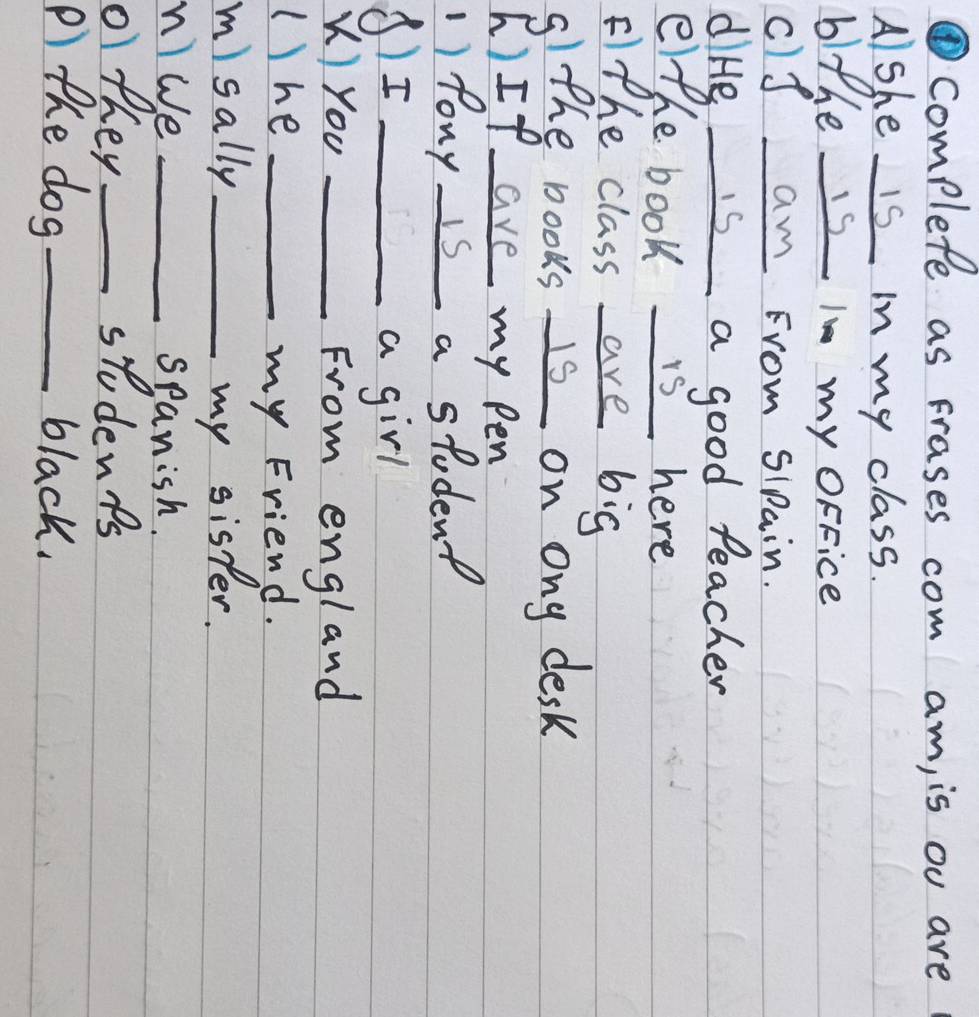 1 Complete as Frases com am, is ou are
A) She is in my class.
b) The is in my OFFice
c) I am From Spain.
d) He is a good teacher
e) The book is here
F) The class are big
g) The books is on ony desk
h) It are my pen
i) Tony is a student
j) I is a girl
k) You ____ From england
l) he ____ my Friend.
m) sally ____ my sister.
n) We ____ spanish.
o) They ____ students
p) The dog ____ black.